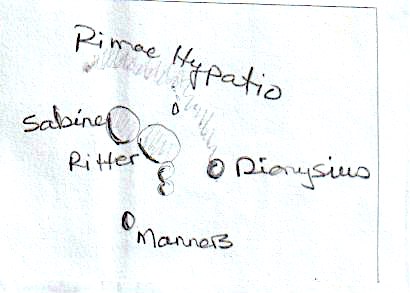 Rimae Hypatio
Sabine
Ritter
Dionysius
Manners